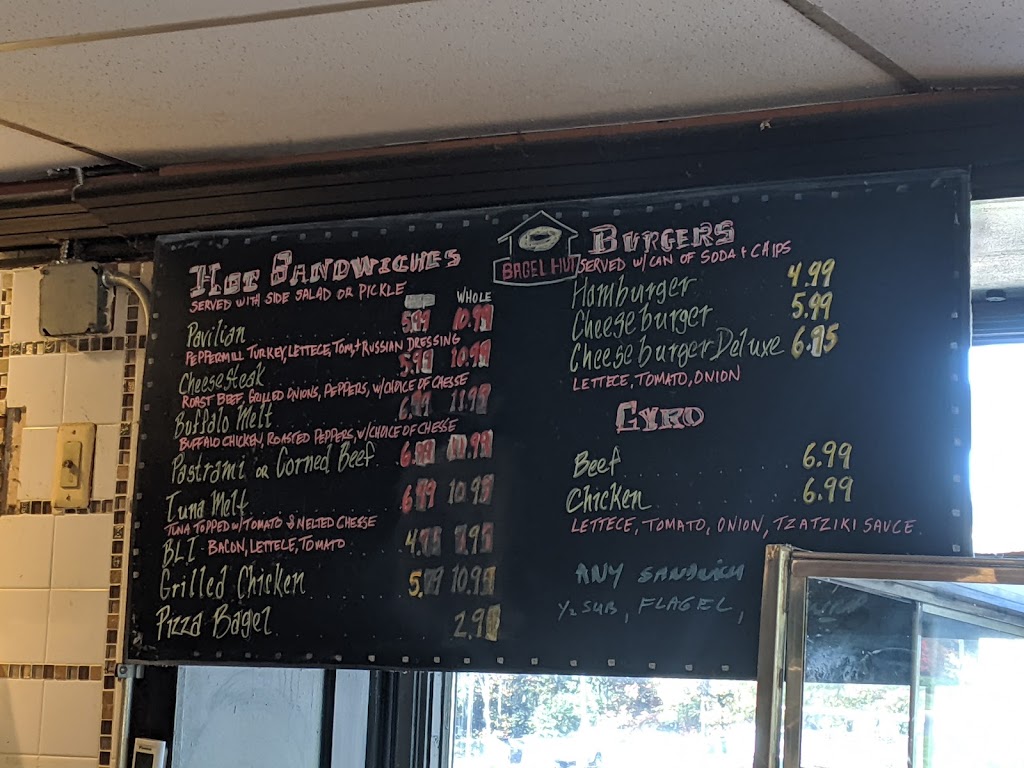 Hot Sandwiches
SERVED WITH SIDE SALAD OR PICKLE
WHOLE
Pavilian 5.99 10.99
PEPPERMILL TURKEY, LETTECE, TOM, + RUSSIAN DRESSING
Cheese Steak 5.99 10.99
ROAST BEEF, GRILLED ONIONS, PEPPERS, W/CHOICE OF CHEESE
Buffalo Melt 6.99 11.99
BUFFALO CHICKEN, ROASTED PEPPERS, W/CHOICE OF CHEESE
Pastrami OR Corned Beef 6.99 11.99
Tuna Melt 6.99 10.95
TUNA TOPPED W/TOMATO & MELTED CHEESE
BLT BACON, LETTECE, TOMATO
Grilled Chicken
Pizza Bagel
BAGEL HUT
BURGERS
SERVED W/CAN OF SODA + CHIPS
Hamburger 4.99
Cheeseburger 5.99
Cheeseburger Deluxe 6.75
LETTECE, TOMATO, ONION
GYRO
Beef 6.99
Chicken 6.99
LETTECE, TOMATO, ONION, TZATZIKI SAUCE
ANY SANDWICH
1/2 SUB, FLAGEL,